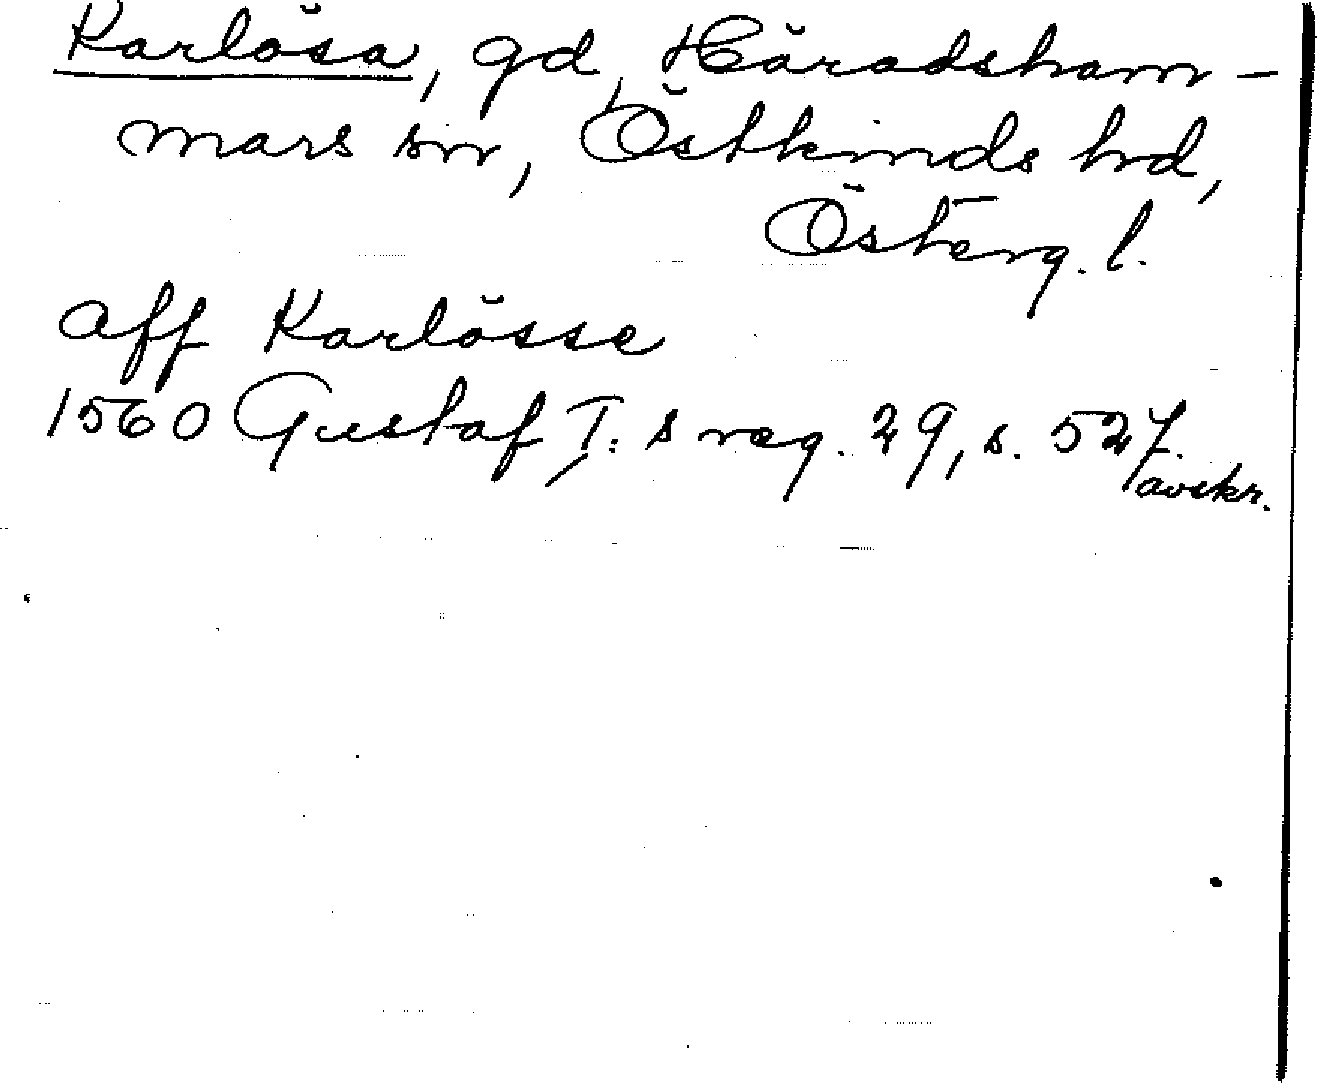 Karlösa, gd, Häradsham-
mars sn, Östkinds hd,
Österg. l.
aff Karlösse
1560 Gustaf I:s reg. 29, s. 527.
avskr.